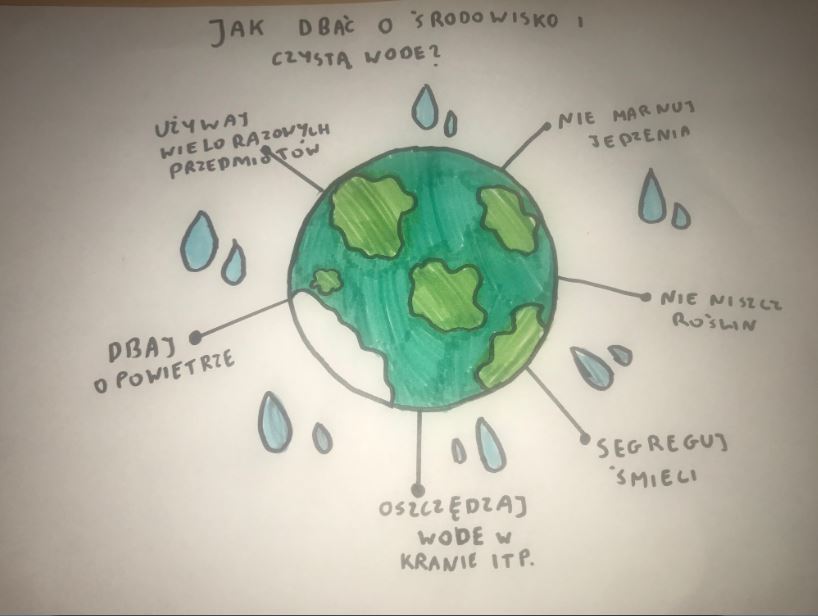 JAK DBAĆ O ŚRODOWISKO I
CZYSTĄ WODE?
UŻYWAJ
WIELORAZOWYCH
PRZEDMIOTÓW
NIE MARNUJ
JEDZENIA
NIE NISZCZ
ROŚLIN
DBAJ
O POWIETRZE
SEGREGUJ
ŚMIECI
OSZCZĘDZAJ
WODE W
KRANIE ITP.